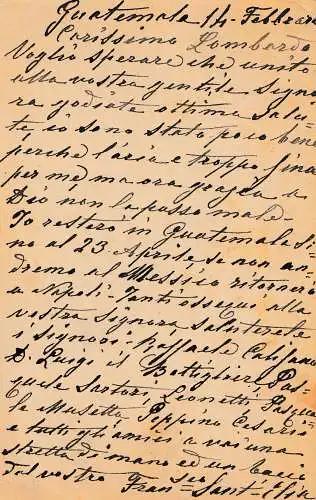 Guatemala 14 Febbraio
Carissimo Lombardo
Voglio sperare che unito
alla vostra gentile Signo
ra godiate ottima salu
te, io sono stato poco bene
perche l'aria e troppo fina
per me, ma ora grazia a
Dio non la passo male-
Io resterò in Guatemala si
no al 23 Aprile, se non an
dremo al Messico ritornerò
a Napoli- Tanti ossequi alla
vostra signora salutatele
i signori: Raffaele Califano
D. Luigi il Bottiglieri, Pas
quale Sartori, Leonetti, Pasqua
le Musetta Peppino Cesario
e tutti gli amici a voi una
stretta di mano ed un bacio
dal vostro Fran Sant'Elia